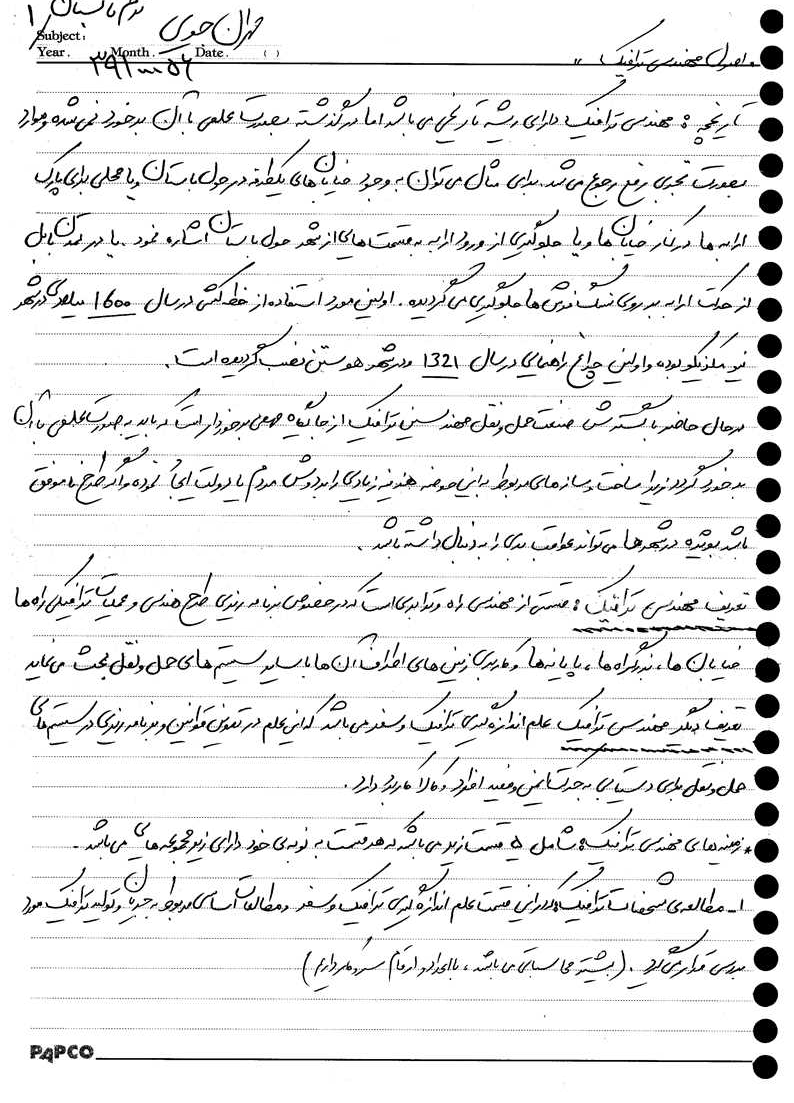 ترم تابستان
1
مهران حسن
Subject:
Year. Month. Date. ( )
"اصول مهندسی ترافیک"
تاریخچه: مهندسی ترافیک دارای ریشه تاریخی می باشد اما در گذشته بصورت علمی با آن برخورد نمی شده و موارد
بصورت تجربی رفع رجوع می شد. برای مثال می توان به وجود خیابان های یکطرفه در حول باستان و یا محلی برای پارک
ارابه ها در کنار خیابان ها و یا جلوگیری از ورود ارابه به قسمت هایی از شهر حول باستان اشاره نمود. یا در تمدن بابل
از حرکت ارابه بر روی سنگ فرش ها جلوگیری می گردیده. اولین مورد استفاده از خط کشی در سال 1600 میلادی در شهر
نیو مکزیکو بوده و اولین چراغ راهنمایی در سال 1321 و در شهر هوستن نصب گردیده است.
در حال حاضر با گسترش صنعت حمل و نقل مهندسین ترافیک از جایگاه مهمی برخوردار است که باید به صورت علمی با آن
برخورد گردد زیرا ساخت و سازهای مربوط به این حوضه هزینه زیادی را بر دوش مردم یا دولت ایجاد نموده و اگر طرح ناموفق
باشد بویژه در شهرها می تواند عواقب بدی را به دنبال داشته باشد.
تعریف مهندسی ترافیک: قسمتی از مهندسی راه و ترابری است که در خصوص برنامه ریزی طرح هندسی و عملیات ترافیکی راه ها
خیابان ها، بزرگراه ها، پایانه ها و کاربری زمین های اطراف آن ها با سایر سیستم های حمل و نقل بحث می نماید
تعریف دیگر مهندسی ترافیک علم اندازه گیری ترافیک و سفر می باشد که این علم در تدوین قوانین و برنامه ریزی در سیستم های
حمل و نقل برای دستیابی به حرکت ایمن و مفید افراد و کالا کاربرد دارد.
* زمینه های مهندسی ترافیک: شامل ۵ قسمت زیر می باشد که هر قسمت به نوبه ی خود دارای زیر مجموعه هایی می باشد.
۱- مطالعه ی مشخصات ترافیک: در این قسمت علم اندازه گیری ترافیک و سفر و مطالعات اساسی مربوط به جریان و تولید ترافیک مورد
بررسی قرار می گیرد. (بیشتر محاسباتی می باشد، با اعداد و ارقام سروکار داریم)
PAPCO